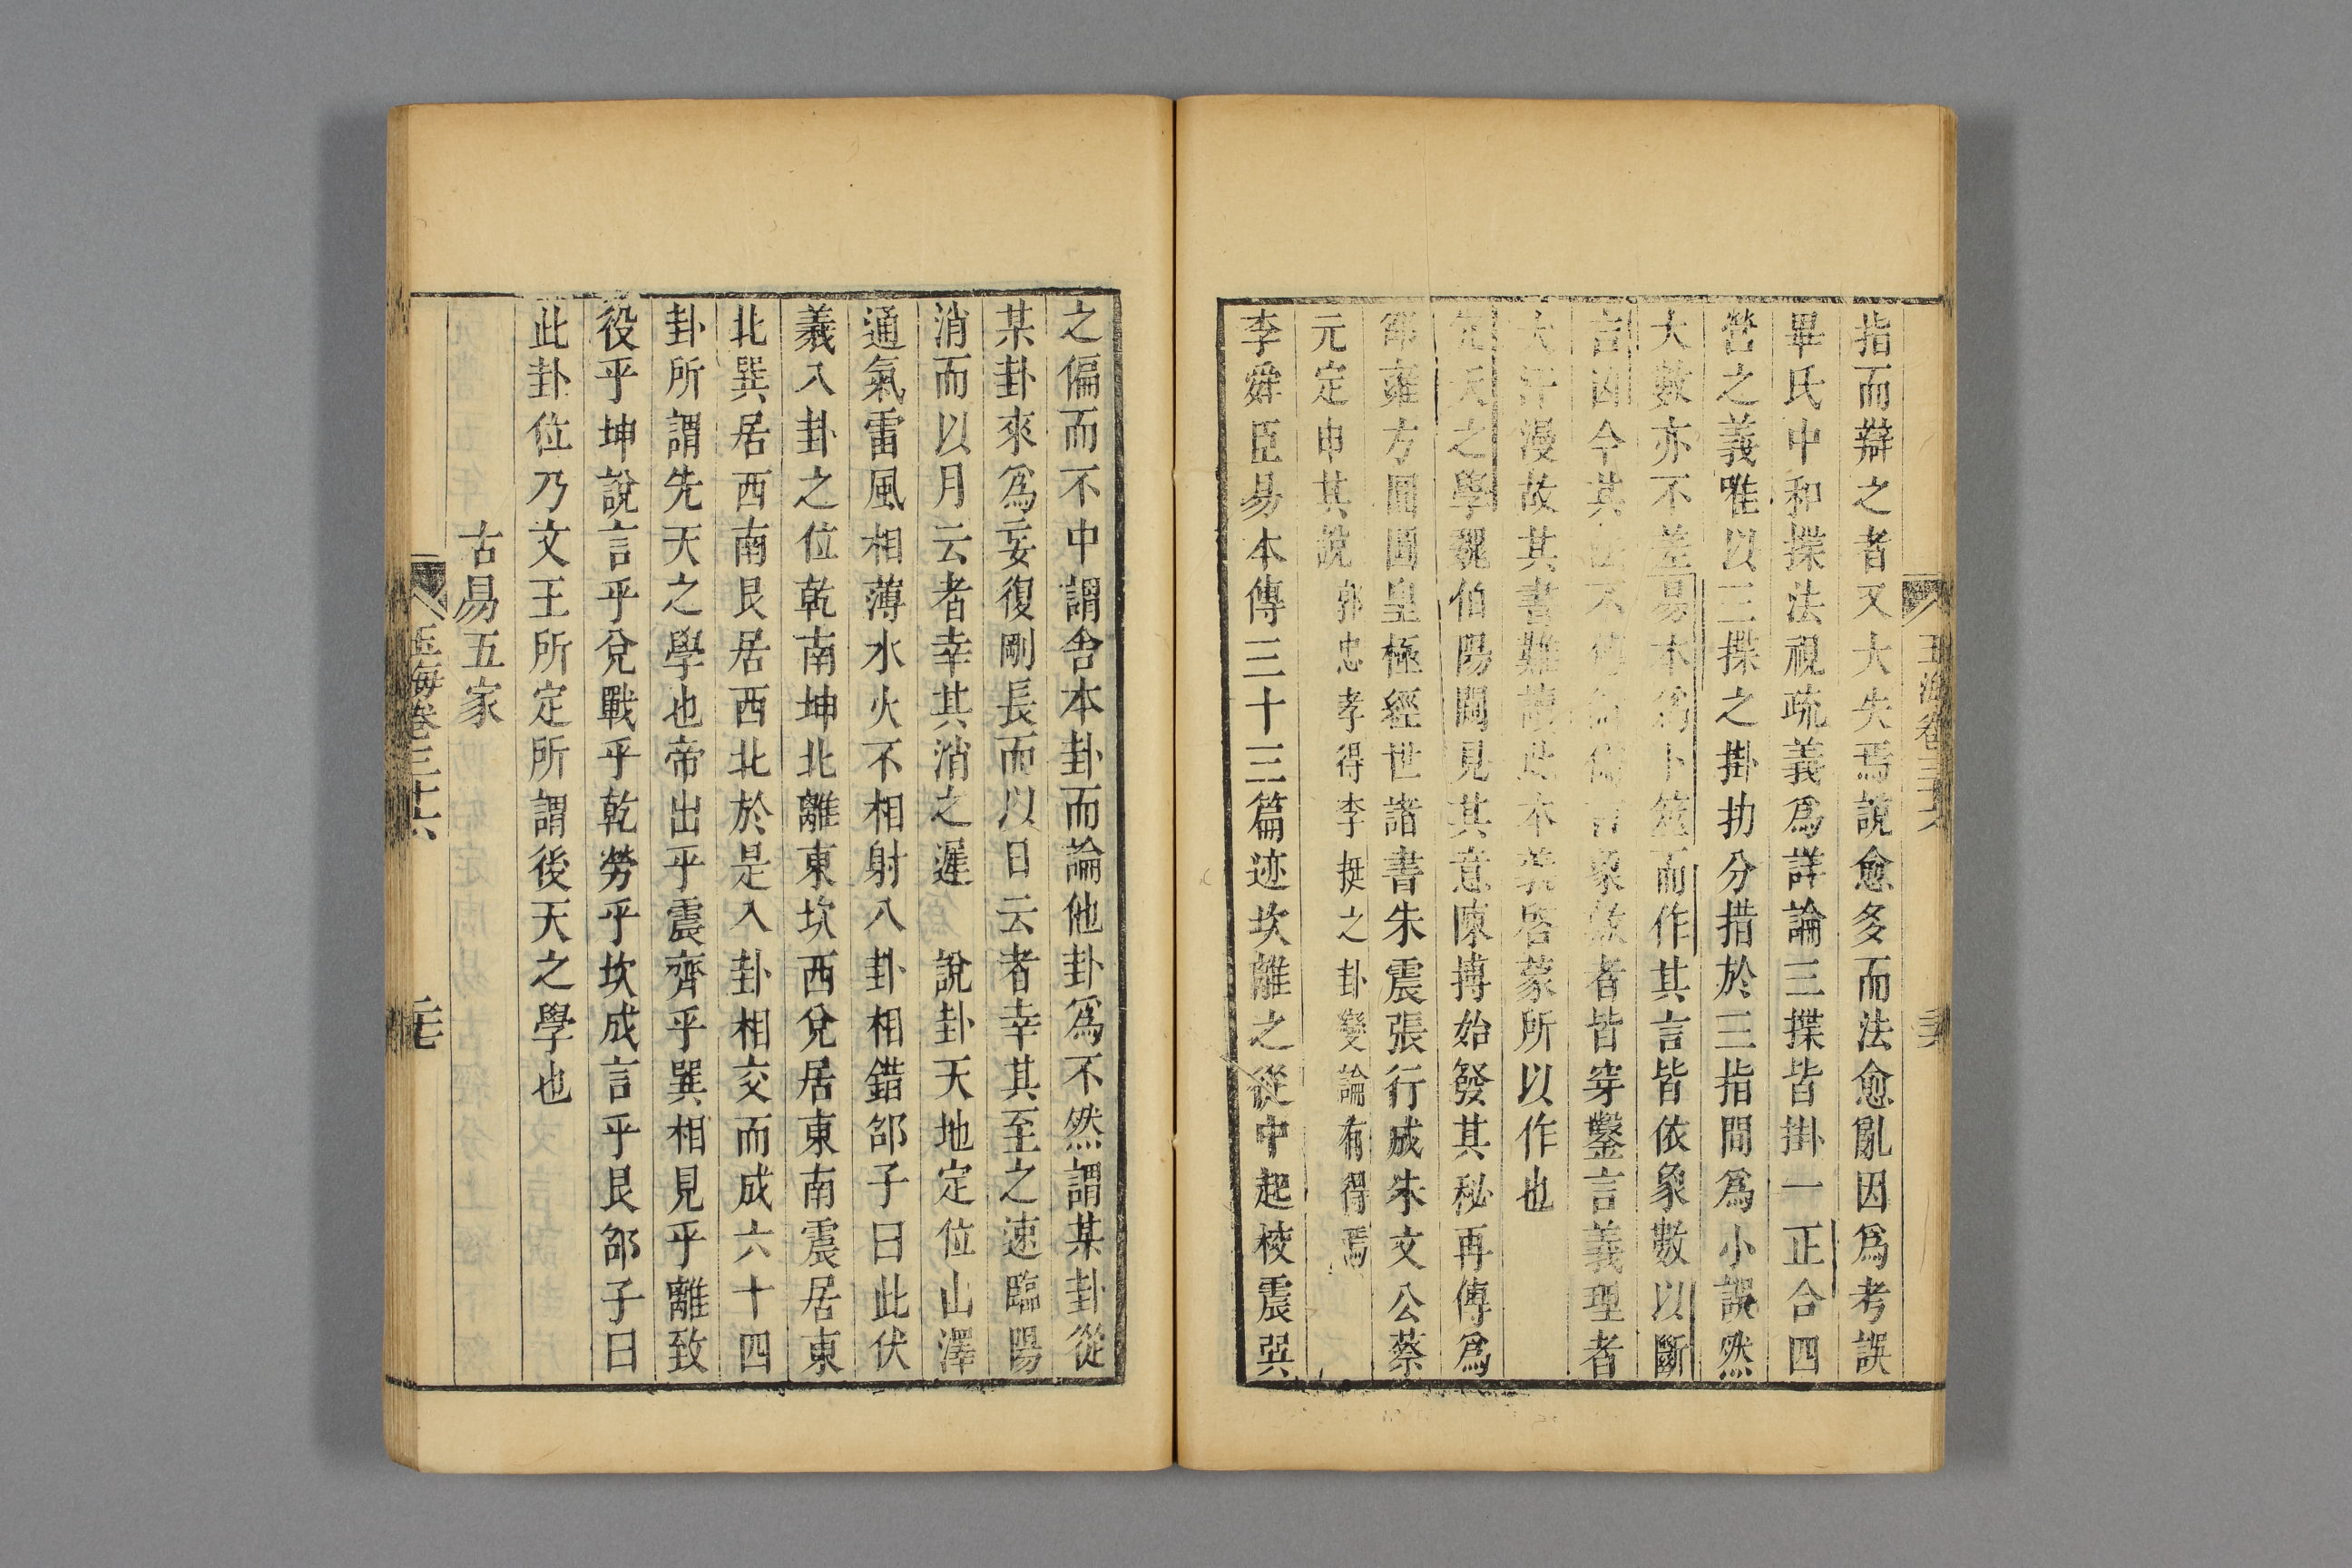 指而辯之者又大失焉說愈多而法愈亂因爲考誤
畢氏中和揲法視疏義爲詳論三揲皆掛一正合四
營之義唯以三揲之掛扐分措於三指間爲小誤然
大數亦不差易本爲卜筮而作其言皆依象數以斷
言凶今其法不傳諸儒言象數者皆穿鑿言義理者
大汗漫故其書難讀此本義啓蒙所以作也
先天之學魏伯陽闚見其意陳摶始發其秘再傳爲
邵雍方圖圓皇極經世諸書朱震張行成朱文公蔡
元定申其說郭忠孝得李挺之卦變論有得焉
李舜臣易本傳三十三篇迹坎離之從中起棱震巽
玉海卷三十六
之偏而不中謂舍本卦而論他卦爲不然謂某卦從
某卦來爲妄復剛長而以日云者幸其至之速臨陽
消而以月云者幸其消之遲 說卦天地定位山澤
通氣雷風相薄水火不相射八卦相錯邵子曰此伏
羲入卦之位乾南坤北離東坎西兌居東南震居東
北巽居西南艮居西北於是入卦相交而成六十四
卦所謂先天之學也帝出乎震齊乎巽相見乎離致
役乎坤說言乎兌戰乎乾勞乎坎成言乎艮邵子曰
此卦位乃文王所定所謂後天之學也
古易五家
玉海卷三十六